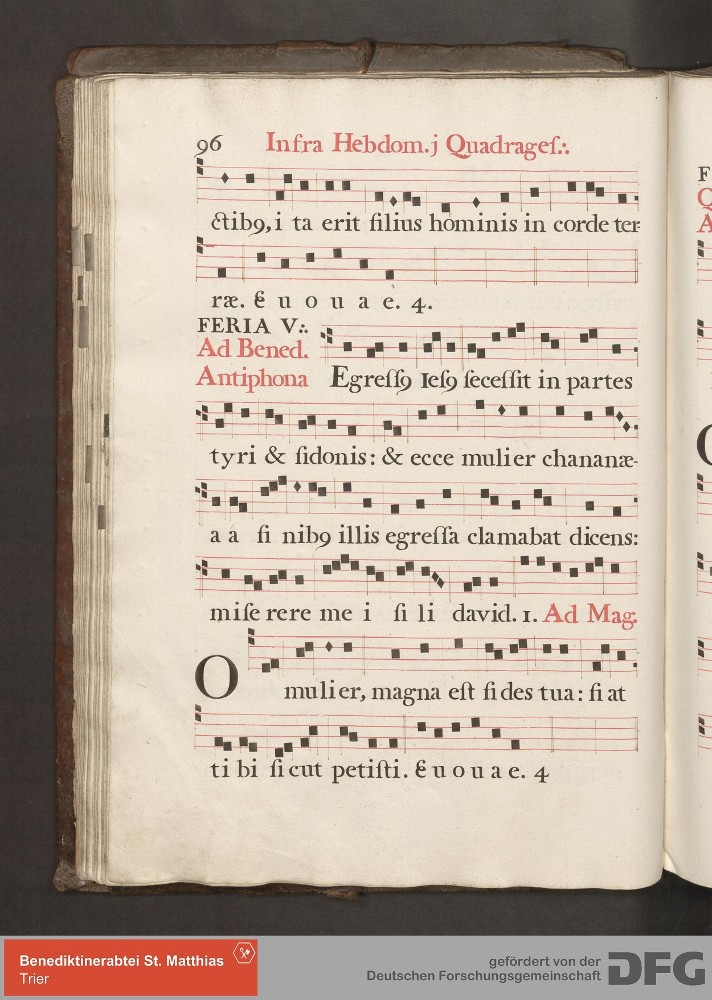 96 Infra Hebdom.j Quadrageſ∴
ctibꝯ, i ta erit filius hominis in corde ter-
ræ. E u o u a e. 4.
FERIA V∴
Ad Bened.
Antiphona Egreſſꝯ Ieſꝯ ſeceſſit in partes
tyri & ſidonis: & ecce mulier chananæ-
a a ſi nibꝯ illis egreſſa clamabat dicens:
miſe rere me i ſi li david. 1. Ad Mag:
O mulier, magna eſt fides tua: fi at
ti bi ſicut petiſti. E u o u a e. 4
F
Q
A
Benediktinerabtei St. Matthias
Trier
gefördert von der
Deutschen Forschungsgemeinschaft
DFG